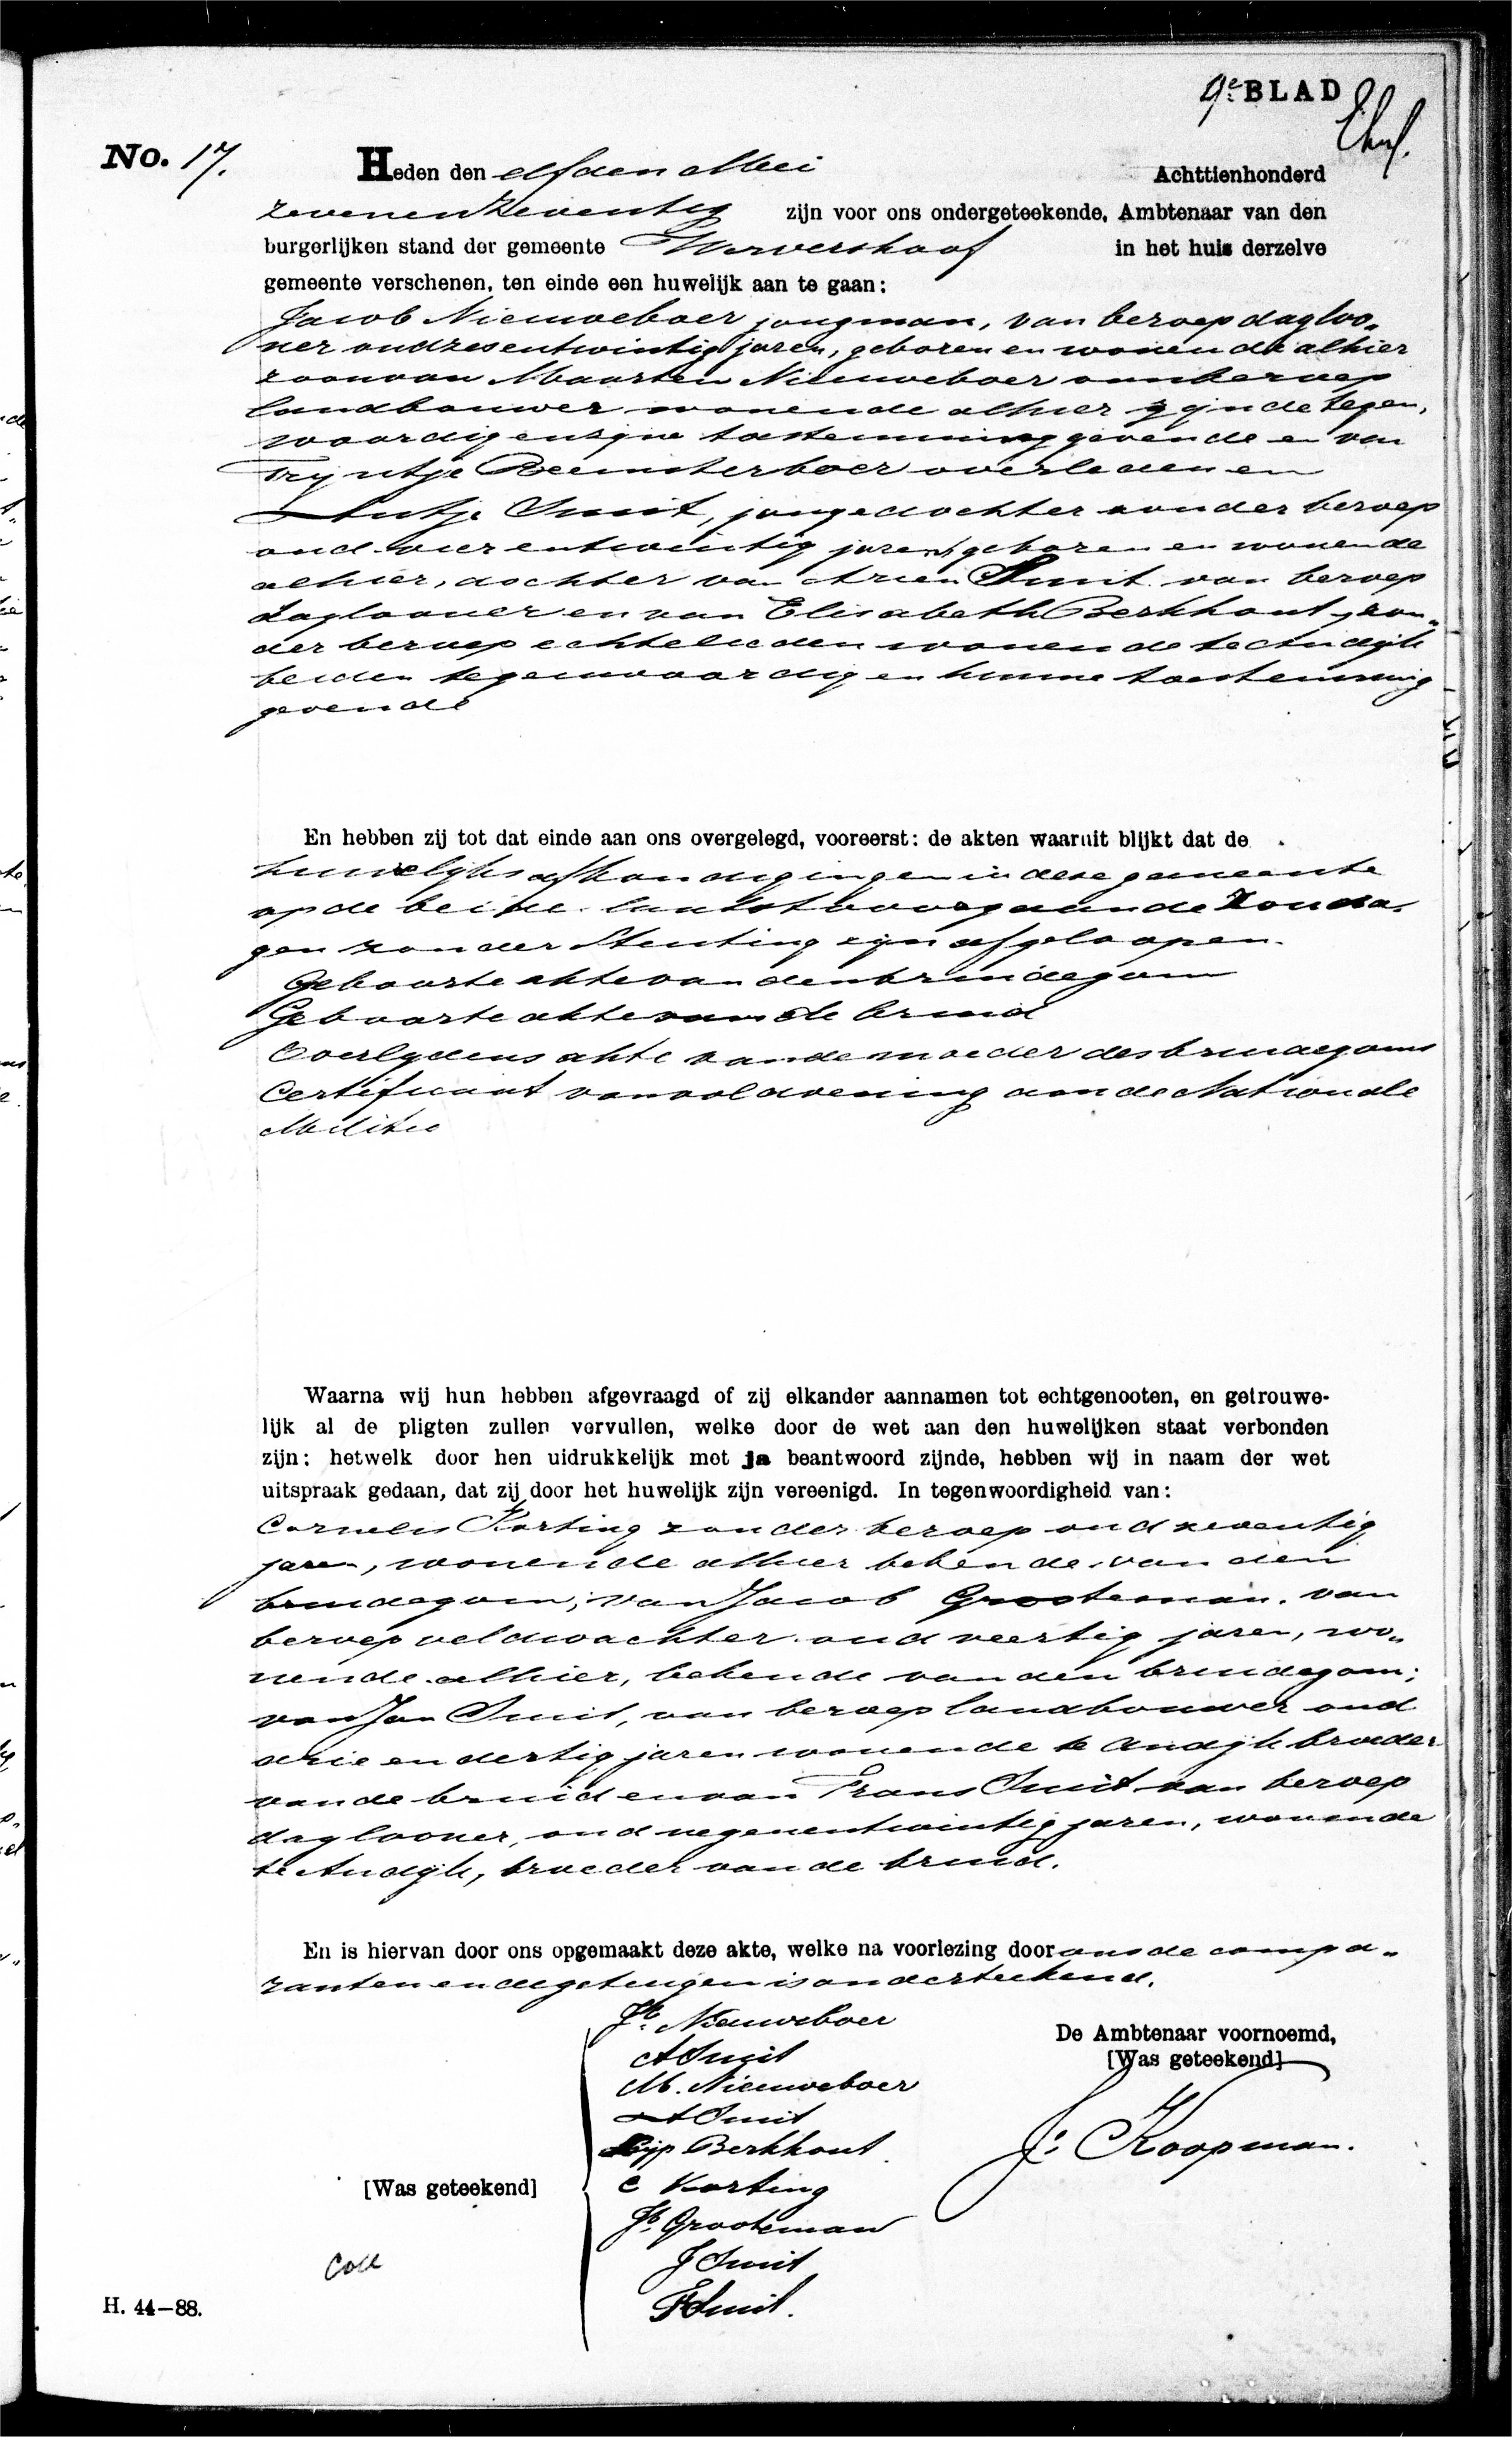 9e BLAD
No. 17.
Heden den elfden Mei Achttienhonderd
zevenenzeventig zijn voor ons ondergeteekende, Ambtenaar van den
burgerlijken stand der gemeente Wervershoof in het huis derzelve
gemeente verschenen, ten einde een huwelijk aan te gaan:
Jacob Nieuweboer jongman, van beroep dagloo„
ner oud zesentwintig jaren, geboren en wonende alhier
zoon van Maarten Nieuweboer van beroep
landbouwer wonende alhier zijnde tegen„
woordig en zijne toestemming gevende en van
Trijntje Beemsterboer overleden en
Antje Smit, jongedochter zonder beroep
oud vierentwintig jaren, geboren en wonende
alhier, dochter van Arien Smit van beroep
daglooner en van Elisabeth Berkhout, zon„
der beroep echtelieden wonende te Andijk
beiden tegenwoordig en hunne toestemming
gevende
En hebben zij tot dat einde aan ons overgelegd, vooreerst: de akten waaruit blijkt dat de
huwelijksafkondigingen in deze gemeente
op de beide laatstvoorgaande Zonda„
gen zonder Stuiting zijn afgeloopen.
Geboorte akte van den bruidegom
Geboorte akte van de bruid
Overlijdens akte van de moeder des bruidegoms
Certificaat van voldoening aan de Nationale
Militie
Waarna wij hun hebben afgevraagd of zij elkander aannamen tot echtgenooten, en getrouwe-
lijk al de pligten zullen vervullen, welke door de wet aan den huwelijken staat verbonden
zijn: hetwelk door hen uidrukkelijk met ja beantwoord zijnde, hebben wij in naam der wet
uitspraak gedaan, dat zij door het huwelijk zijn vereenigd. In tegenwoordigheid van:
Cornelis Korting zonder beroep oud zeventig
jaren, wonende alhier bekende van den
bruidegom; van Jacob Grooteman, van
beroep veldwachter oud veertig jaren, wo„
nende alhier, bekende van den bruidegom;
van Jan Smit, van beroep landbouwer oud
drie en dertig jaren wonende te Andijk broeder
van de bruid en van Frans Smit van beroep
daglooner, oud negenentwintig jaren, wonende
te Andijk, broeder van de bruid.
En is hiervan door ons opgemaakt deze akte, welke na voorlezing door ons de compa„
ranten en de getuigen is onderteekend.
Jb. Nieuweboer
De Ambtenaar voornoemd,
A Smit
[Was geteekend]
M. Nieuweboer
A Smit
Lijp Berkhout
J: Koopman.
[Was geteekend]
C Korting
Jb. Grooteman
J Smit
Coll
F Smit.
H. 44–88.